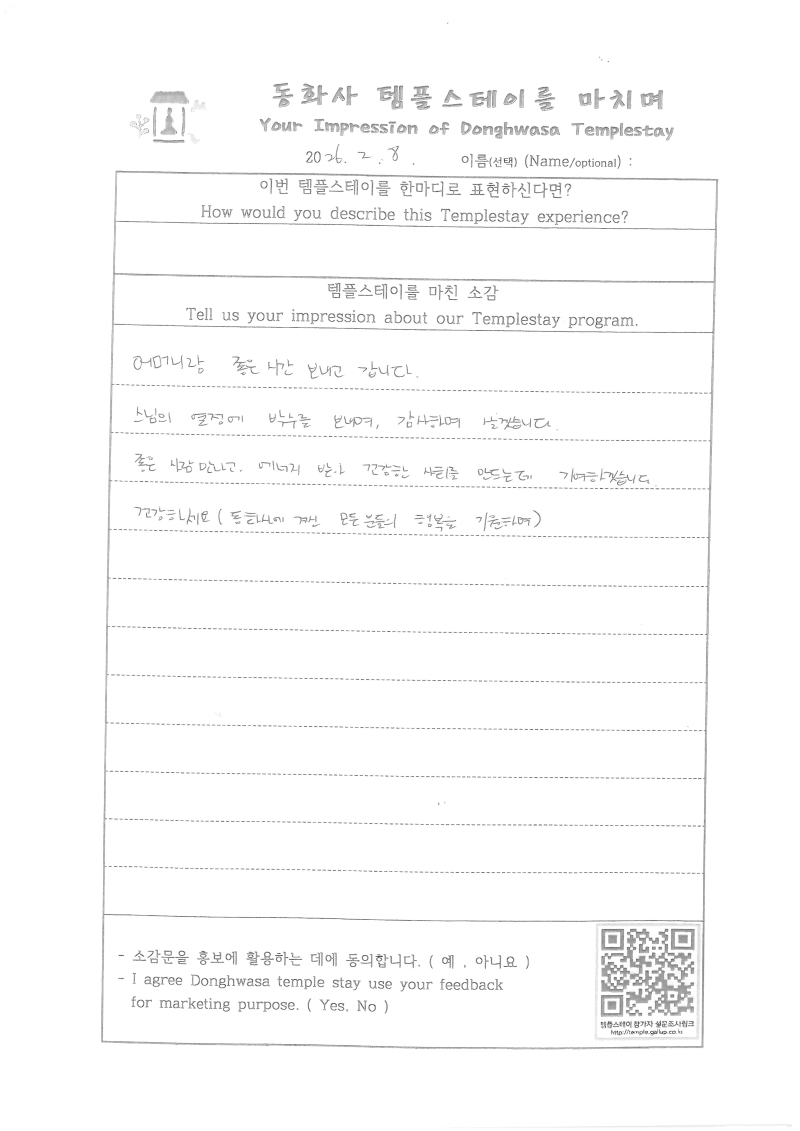 동화사 템플스테이를 마치며
Your Impression of Donghwasa Templestay
2026. 2. 8. 이름(선택) (Name/optional) :
이번 템플스테이를 한마디로 표현하신다면?
How would you describe this Templestay experience?
템플스테이를 마친 소감
Tell us your impression about our Templestay program.
어머니랑 좋은 시간 보내고 갑니다.
스님의 열정에 박수를 보내며, 감사하며 살겠습니다.
좋은 사람 만나고, 에너지 받아 건강한 사회를 만드는데 기여하겠습니다
건강하세요 (동화사에 계신 모든 분들의 행복을 기원하며)
- 소감문을 홍보에 활용하는 데에 동의합니다. ( 예 , 아니요 )
- I agree Donghwasa temple stay use your feedback
for marketing purpose. ( Yes, No )
템플스테이 참가자 설문조사링크
http://temple.gallup.co.kr